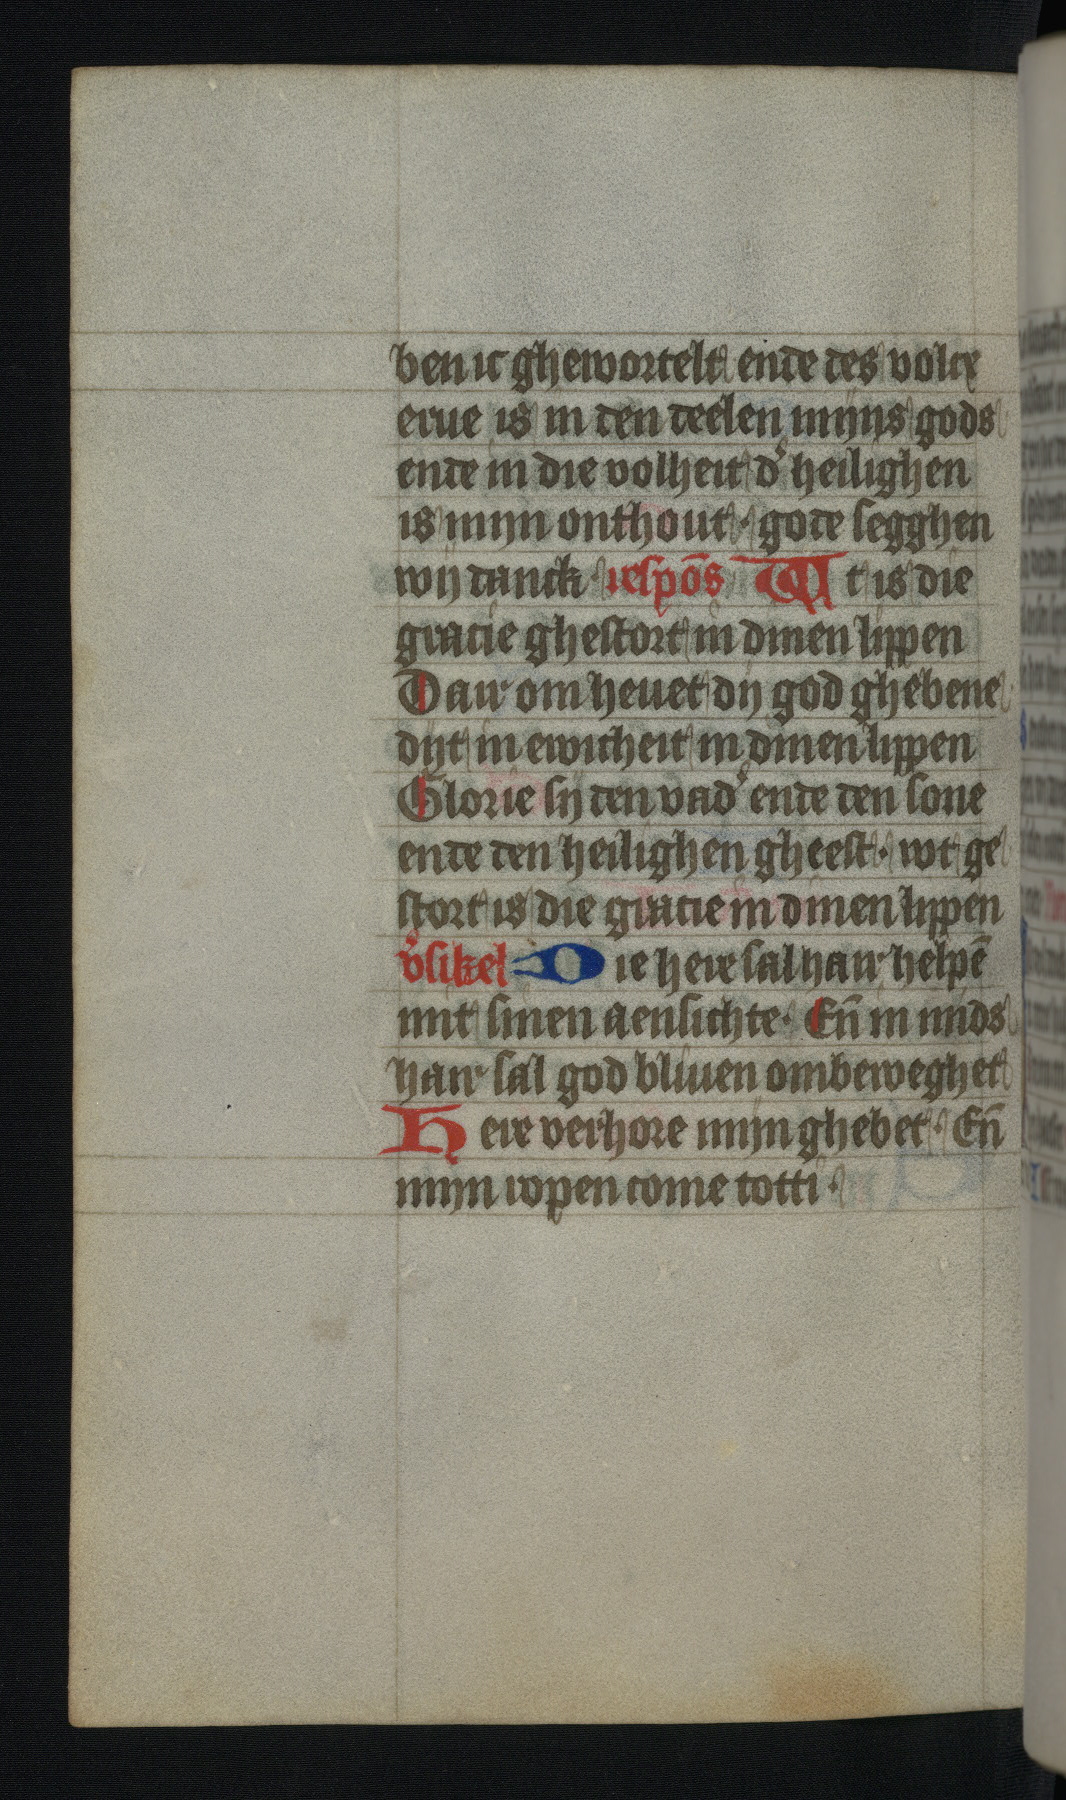 ben ic ghewortelt ende des volcx
erue is in den deelen mijns gods
ende in die volheit dʼ heilighen
is mijn onthout · gode segghen
wij danck · respōs Wt is die
gracie ghestort in dinen lippen
Dair om heuet dy god ghebene
dijt in ewicheit in dinen lippen
Glorie sij den vadʼ ende den sone
ende den heilighen gheest · wt ge
stort is die gracie in dinen lippen
vʼsikel Die here sal hair helpē
mit sinen aensichte · En̄ in mids
hair sal god bliuen ombeweghet
Here verhore mijn ghebet · En̄
mijn ropen come totti ·